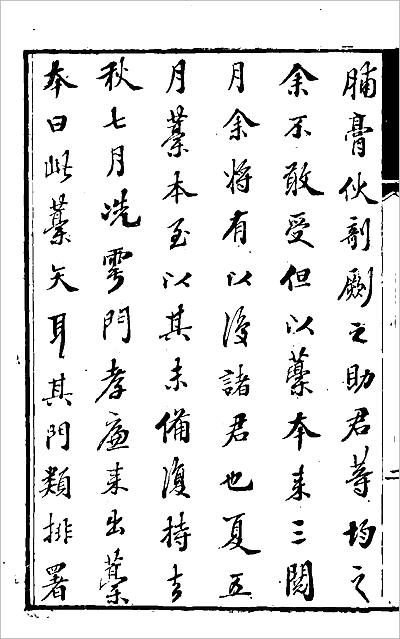 脯膏伙剞劂之助君等均之
余不敢受但以藁本来三閲
月余将有以復諸君也夏五
月藁本至以其未備復持去
秋七月冼雩門孝廉来出藁
本曰此藁矢耳其門類排署
二